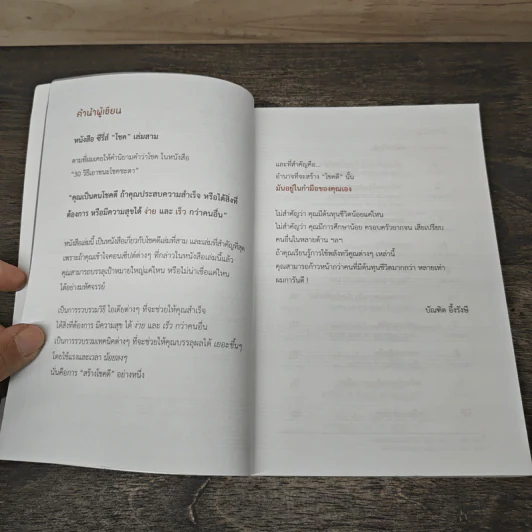 คำนำผู้เขียน
หนังสือ ซีรี่ส์ "โชค" เล่มสาม
ตามที่ผมเคยให้คำนิยามคำว่าโชค ในหนังสือ
"30 วิธีเอาชนะโชคชะตา"
"คุณเป็นคนโชคดี ถ้าคุณประสบความสำเร็จ หรือได้สิ่งที่
ต้องการ หรือมีความสุขได้ ง่าย และ เร็ว กว่าคนอื่น"
หนังสือเล่มนี้ เป็นหนังสือเกี่ยวกับโชคดีเล่มที่สาม และเล่มที่สำคัญที่สุด
เพราะถ้าคุณเข้าใจคอนเซ็ปต์ต่างๆ ที่กล่าวในหนังสือเล่มนี้แล้ว
คุณสามารถบรรลุเป้าหมายใหญ่แค่ไหน หรือไม่น่าเชื่อแค่ไหน
ได้อย่างมหัศจรรย์
เป็นการรวบรวมวิธี ไอเดียต่างๆ ที่จะช่วยให้คุณสำเร็จ
ได้สิ่งที่ต้องการ มีความสุข ได้ ง่าย และ เร็ว กว่าคนอื่น
เป็นการรวบรวมเทคนิคต่างๆ ที่จะช่วยให้คุณบรรลุผลได้ เยอะขึ้นๆ
โดยใช้แรงและเวลา น้อยลงๆ
นั่นคือการ "สร้างโชคดี" อย่างหนึ่ง
และที่สำคัญคือ...
อำนาจที่จะสร้าง "โชคดี" นั้น
มันอยู่ในกำมือของคุณเอง
ไม่สำคัญว่า คุณมีต้นทุนชีวิตน้อยแค่ไหน
ไม่สำคัญว่า คุณมีการศึกษาน้อย ครอบครัวยากจน เสียเปรียบ
คนอื่นในหลายด้าน ฯลฯ
ถ้าคุณเรียนรู้การใช้พลังทวีคูณต่างๆ เหล่านี้
คุณสามารถก้าวหน้ากว่าคนที่มีต้นทุนชีวิตมากกว่า หลายเท่า
ผมการันตี !
บัณฑิต อึ้งรังษี